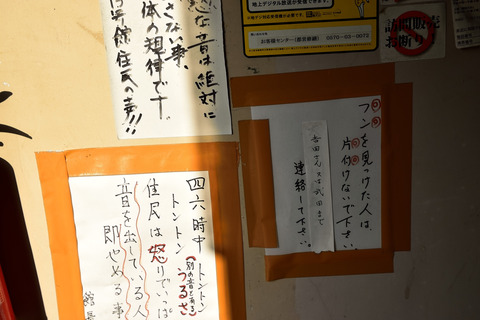 な音は絶対に
さない事、
体の規律です。
号館住民の声!!
地上デジタル放送が受信できます。
お客様センター
0570-03-0072
訪問販売
お断り
フンを見つけた人は、
片付けないで下さい
吉田さん又は武田まで
連絡して下さい。
四六時中トントン
トントン(別の音もあり)うるさ
住民は怒りでいっぱ
音を出している人
即やめる事